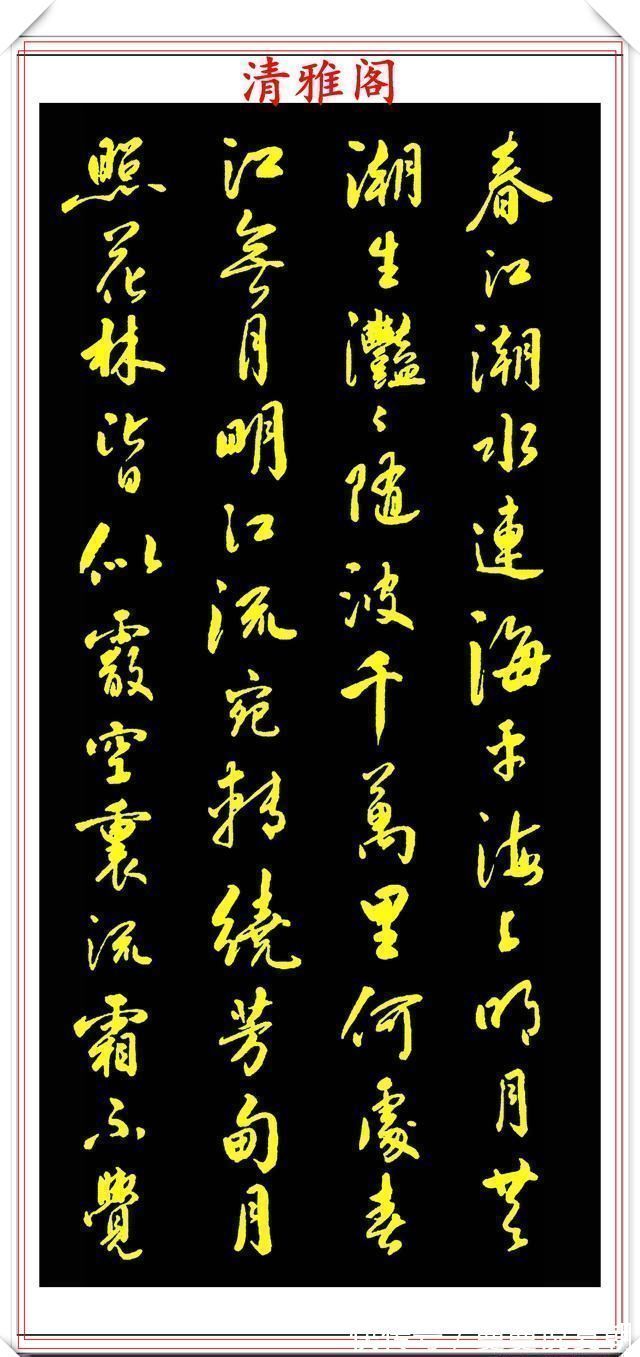 清雅阁
春江潮水連海平海上明月共
潮生灩〻随波千萬里何處春
江無月明江流宛轉繞芳甸月
照花林皆似霰空裏流霜不覺